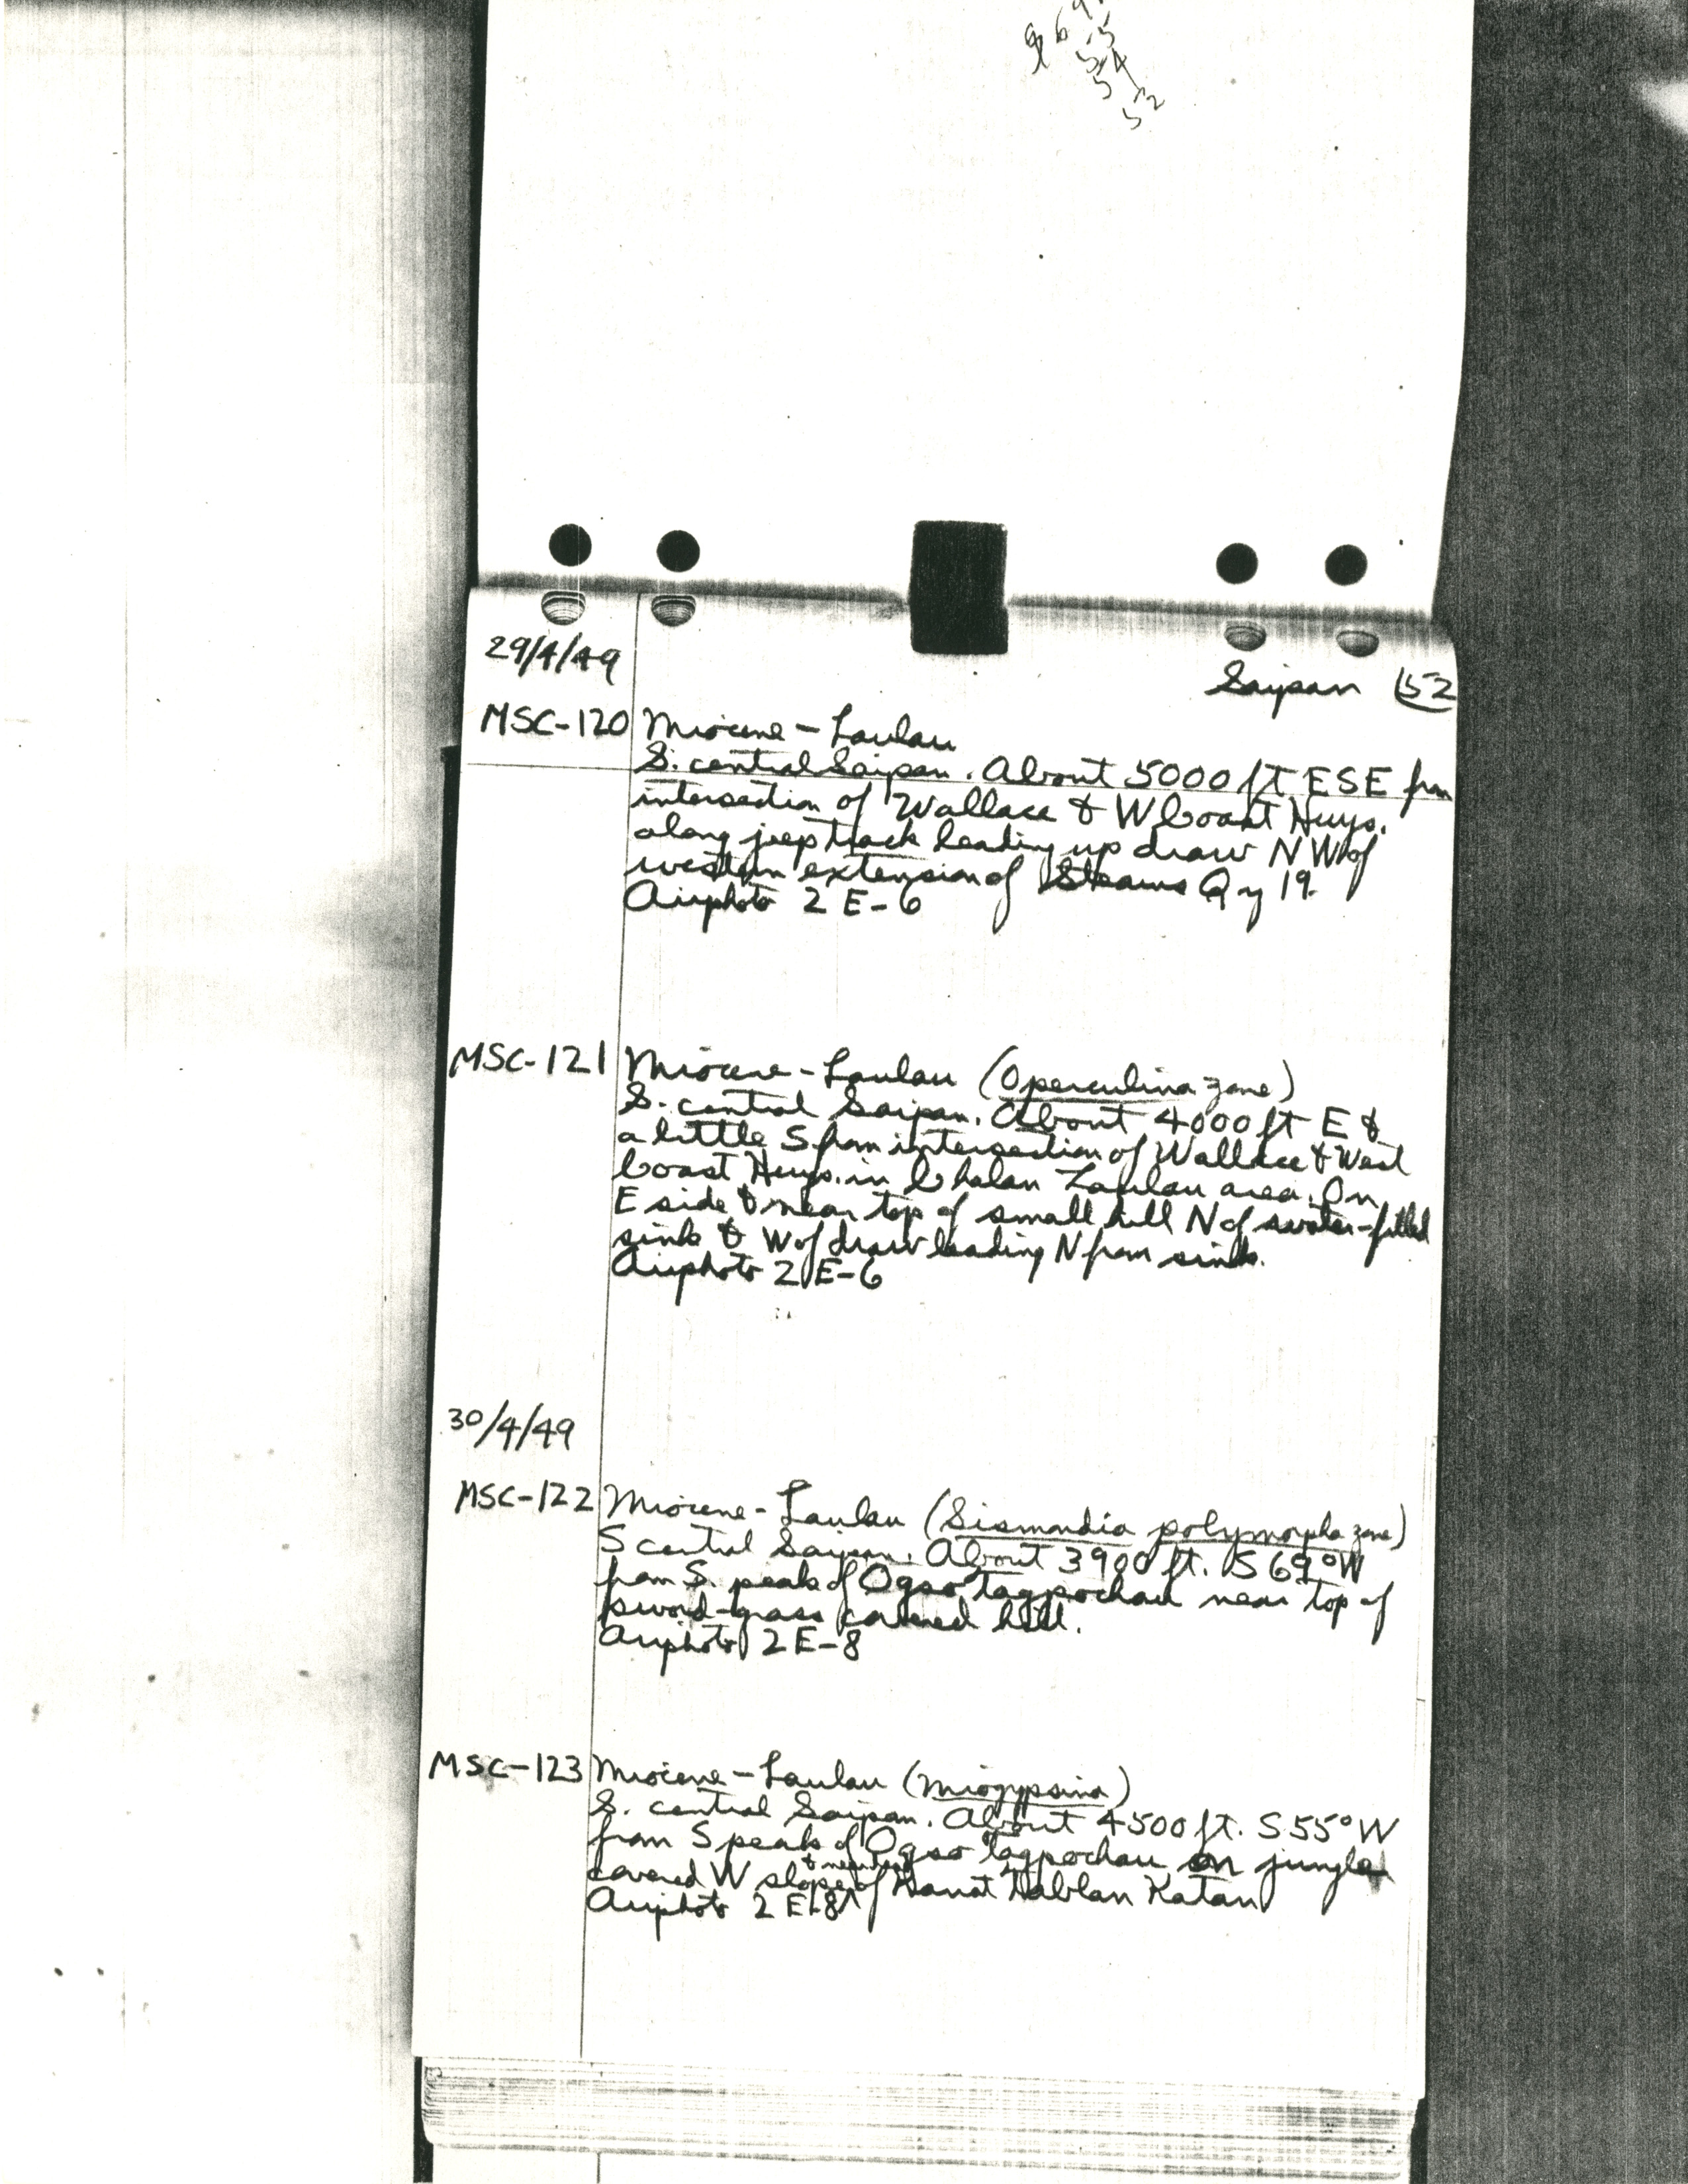 9 6 9
55
54
52
29/4/49
Saipan 52
MSC-120 Miocene - Laulau
S. central Saipan. About 5000 ft ESE frm
intersection of Wallace & W Coast Hwys.
along jeep track leading up draw NW of
western extension of Stearns Qy 19.
Airphoto 2 E-6
MSC-121 Miocene - Laulau (Operculina zone)
S. central Saipan. About 4000 ft E &
a little S from intersection of Wallace & West
Coast Hwys. in Chalan Laulau area. On
E side & near top of small hill N of water-filled
sink & W of draw leading N from sink.
Airphoto 2 E-6
30/4/49
MSC-122 Miocene - Laulau (Sismondia polymorpha zone)
S central Saipan. About 3900 ft. S 69° W
from S. peak of Ogso Tagpochau near top of
sword-grass covered hill.
Airphoto 2 E-8
MSC-123 Miocene - Laulau (Miogypsina)
S. central Saipan. About 4500 ft. S 55° W
from S peak of Ogso Tagpochau on jungle
covered W slope & near top of Kanat Tablan Katan
Airphoto 2 E-8